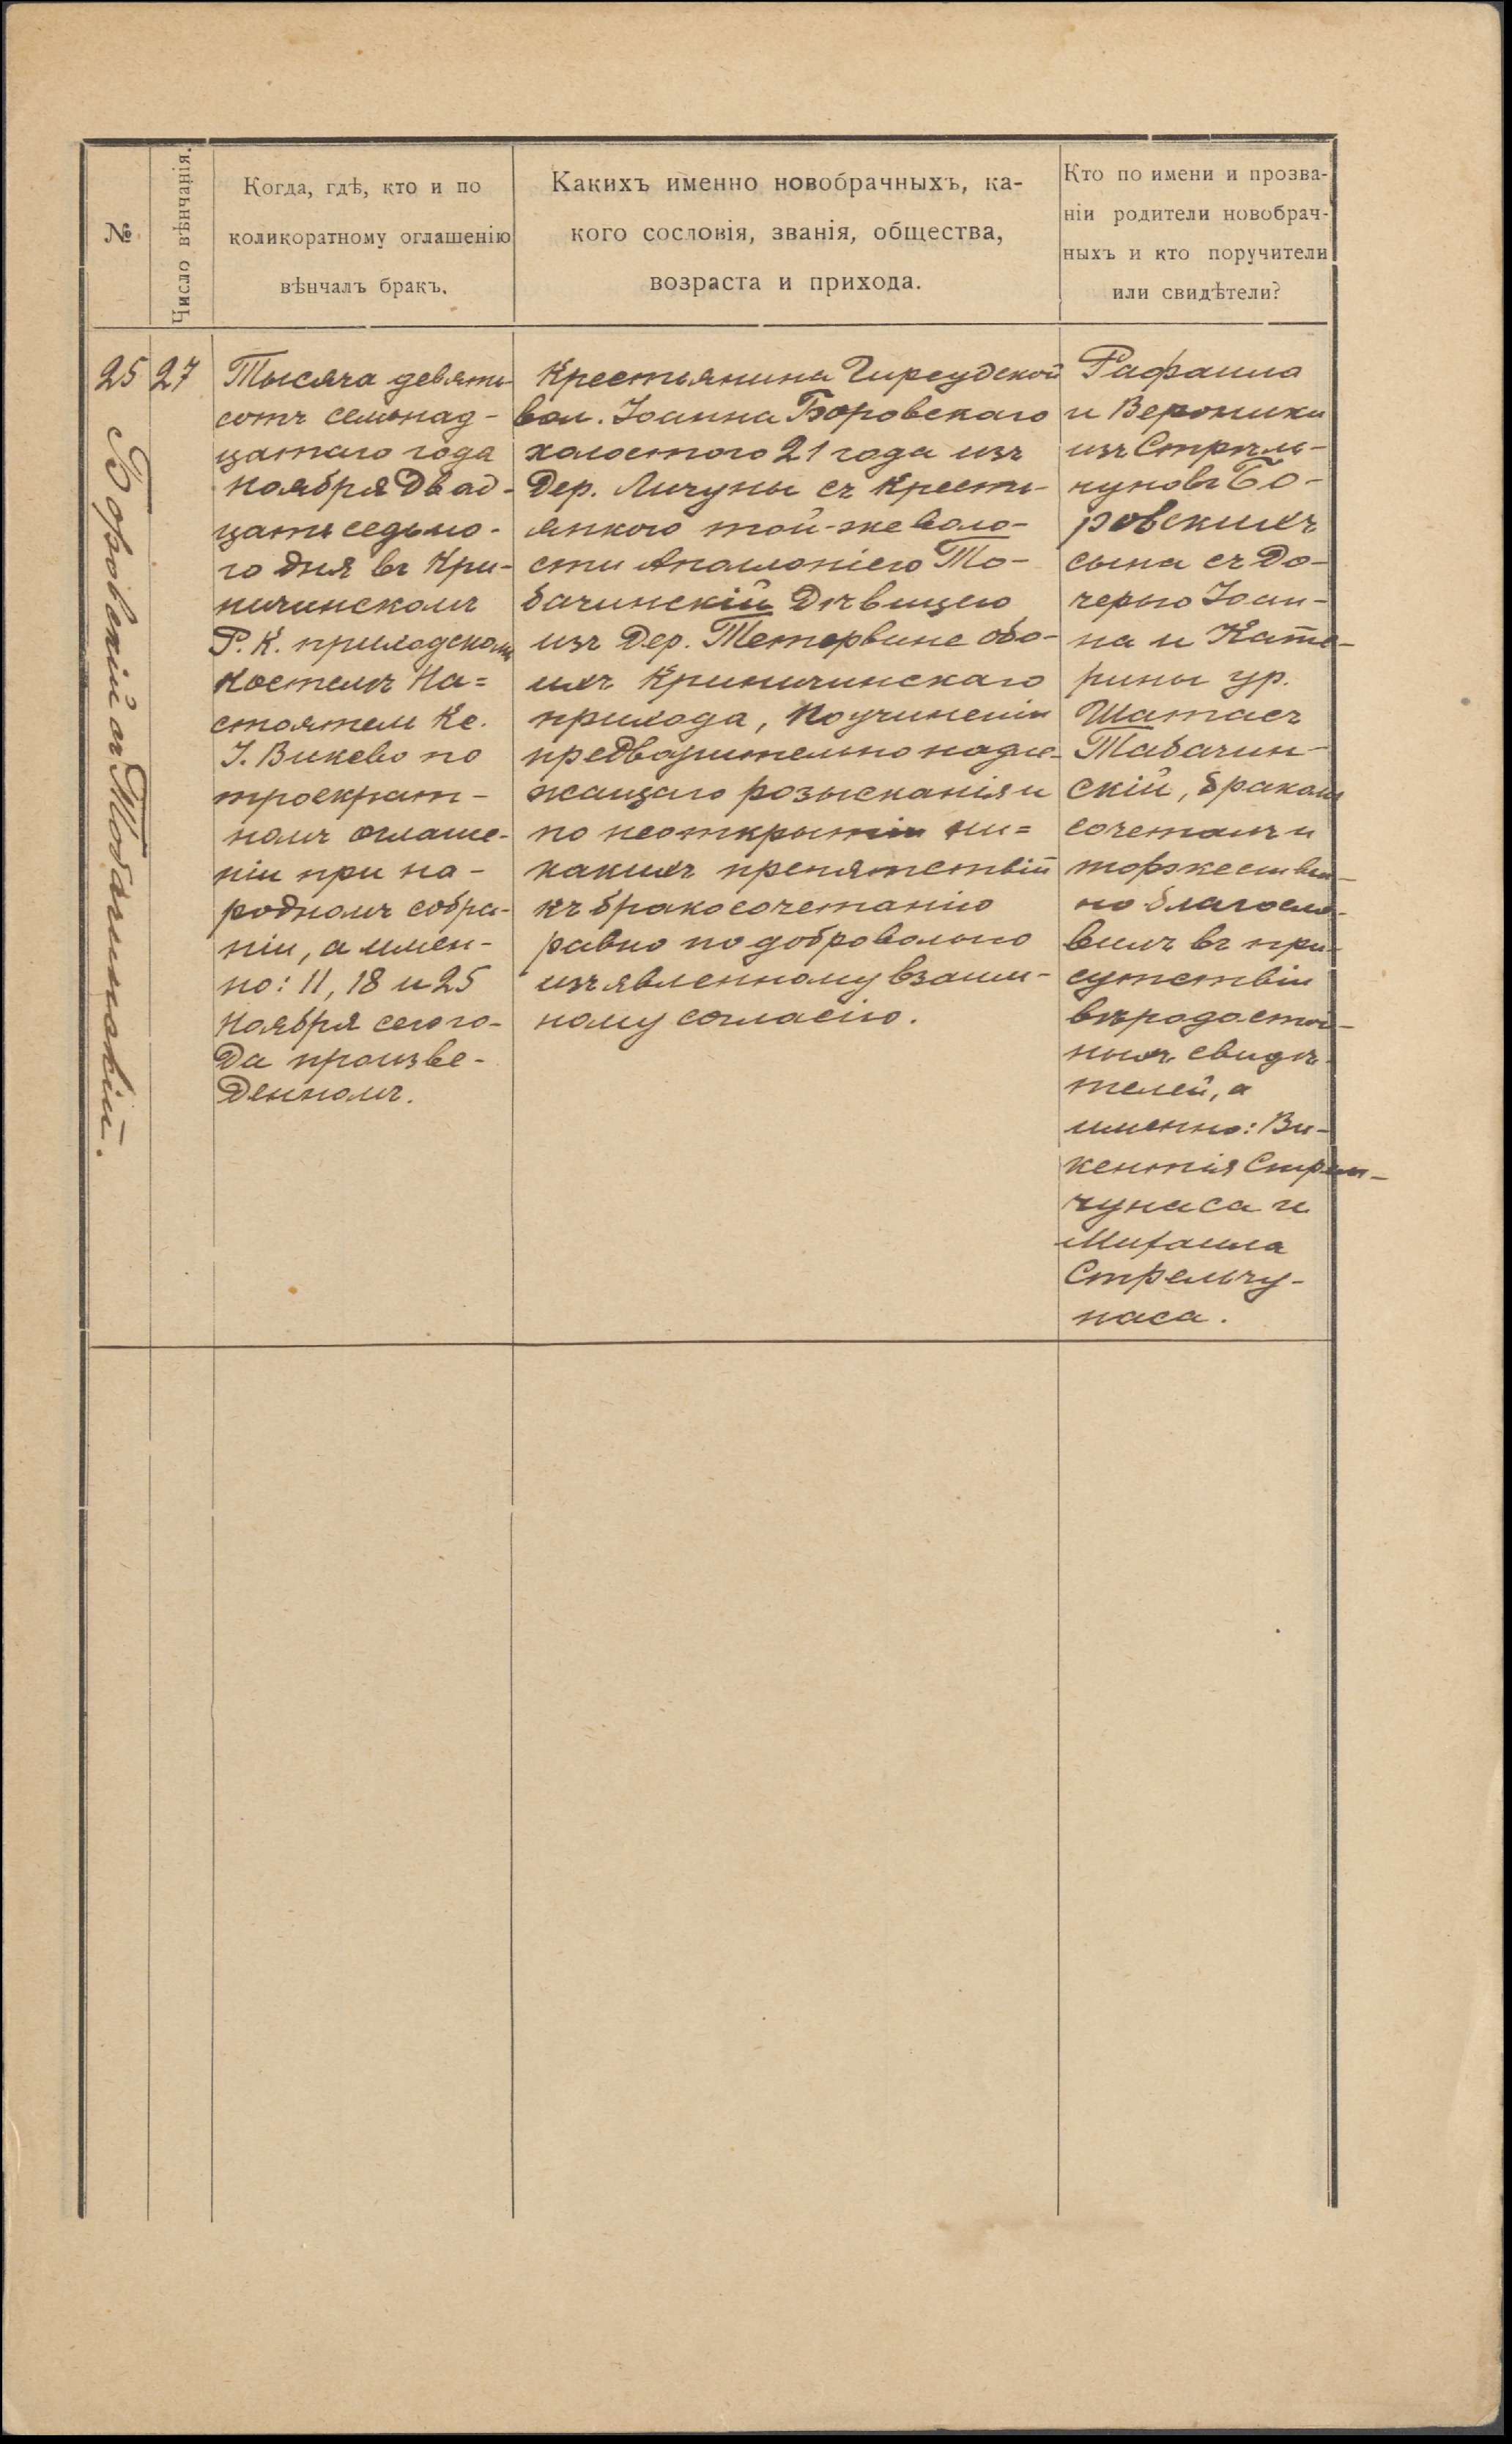 №
Число вѣнчанія.
Когда, гдѣ, кто и по
коликоратному оглашенію
вѣнчалъ бракъ.
Какихъ именно новобрачныхъ, ка-
кого сословія, званія, общества,
возраста и прихода.
Кто по имени и прозва-
ніи родители новобрач-
ныхъ и кто поручители
или свидѣтели?
25
27
Боровскій съ Тобачинскій.
Тысяча девять
сотъ семьнад-
цатаго года
Ноября Двад-
цать седьмо-
го дня въ Кри-
ничинскомъ
Р. К. приходскомъ
Костелѣ На=
стоятель Кс.
І. Викево по
троекрат-
номъ оглаше-
ніи при на-
родномъ собра-
ніи, а имен-
но: 11, 18 и 25
Ноября сего го-
да произве-
Денномъ.
Крестьянина Гиреудской
вол. Іоанна Боровскаго
холостого 21 года изъ
Дер. Личуны съ Кресть-
янкою той-же воло-
сти Аполоніею То-
бачинскій Дѣвицею
изъ Дер. Тетервине обо-
ихъ Криничинскаго
прихода, По учиненіи
предварительно надле-
жащаго розысканія и
по неоткрытіи ни=
какихъ препятствій
къ бракосочетанію
равно по добровольно
изъявленному взаим-
ному согласію.
Рафаила
и Вероники
изъ Стрѣль-
чуновъ Бо-
ровскихъ
сына съ До-
черью Іоан-
на и Кате-
рины ур.
Шатасъ
Табачин-
скій, бракомъ
сочеталъ и
торжествен-
но благосло-
вилъ въ при-
сутствіи
вѣродостой-
ныхъ свидѣ-
телей, а
именно: Ви-
кентія Стрель-
чунаса и
Михаила
Стрельчу-
наса.